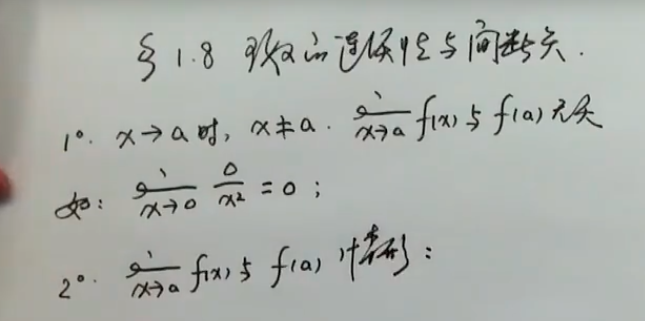 §1.8 函数的连续性与间断点.
1°. x→a时, x≠a. lim x→a f(x)与f(a)无关
如: lim x→0 0/x² = 0;
2°. lim x→a f(x)与f(a)情形: